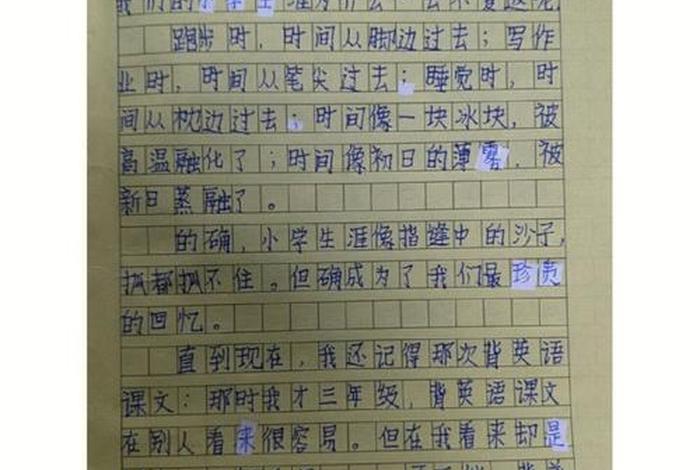 我们的小学生涯为什么
跑步时，时间从脚边过去；写作
业时，时间从笔尖过去；睡觉时，时
间从枕边过去；时间像一块冰块，被
高温融化了；时间像初日的薄雾，被
新日蒸融了。
的确，小学生涯像指缝中的沙子，
抓都抓不住。但确成为了我们最珍贵
的回忆。
直到现在，我还记得那次背英语
课文：那时我才三年级，背英语课文
在别人看来很容易。但在我看来却是